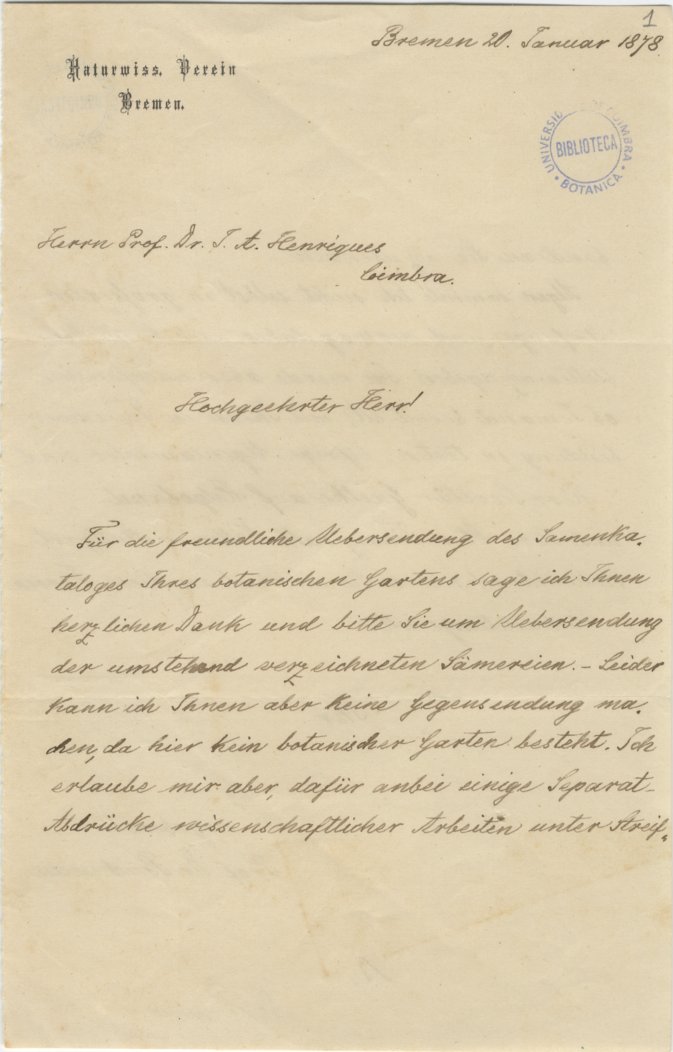 1
Bremen 20. Januar 1878.
Naturwiss. Verein
Bremen.
UNIVERSID DE COIMBRA
BIBLIOTECA
BOTANICA
Herrn Prof. Dr. J. A. Henriques
Coimbra.
Hochgeehrter Herr!
Für die freundliche Uebersendung des Samenka-
taloges Ihres botanischen Gartens sage ich Ihnen
herzlichen Dank und bitte Sie um Uebersendung
der umstehend verzeichneten Sämereien. – Leider
kann ich Ihnen aber keine Gegensendung ma-
chen, da hier kein botanischer Garten besteht. Ich
erlaube mir aber, dafür anbei einige Separat-
Abdrücke wissenschaftlicher Arbeiten unter Streif-